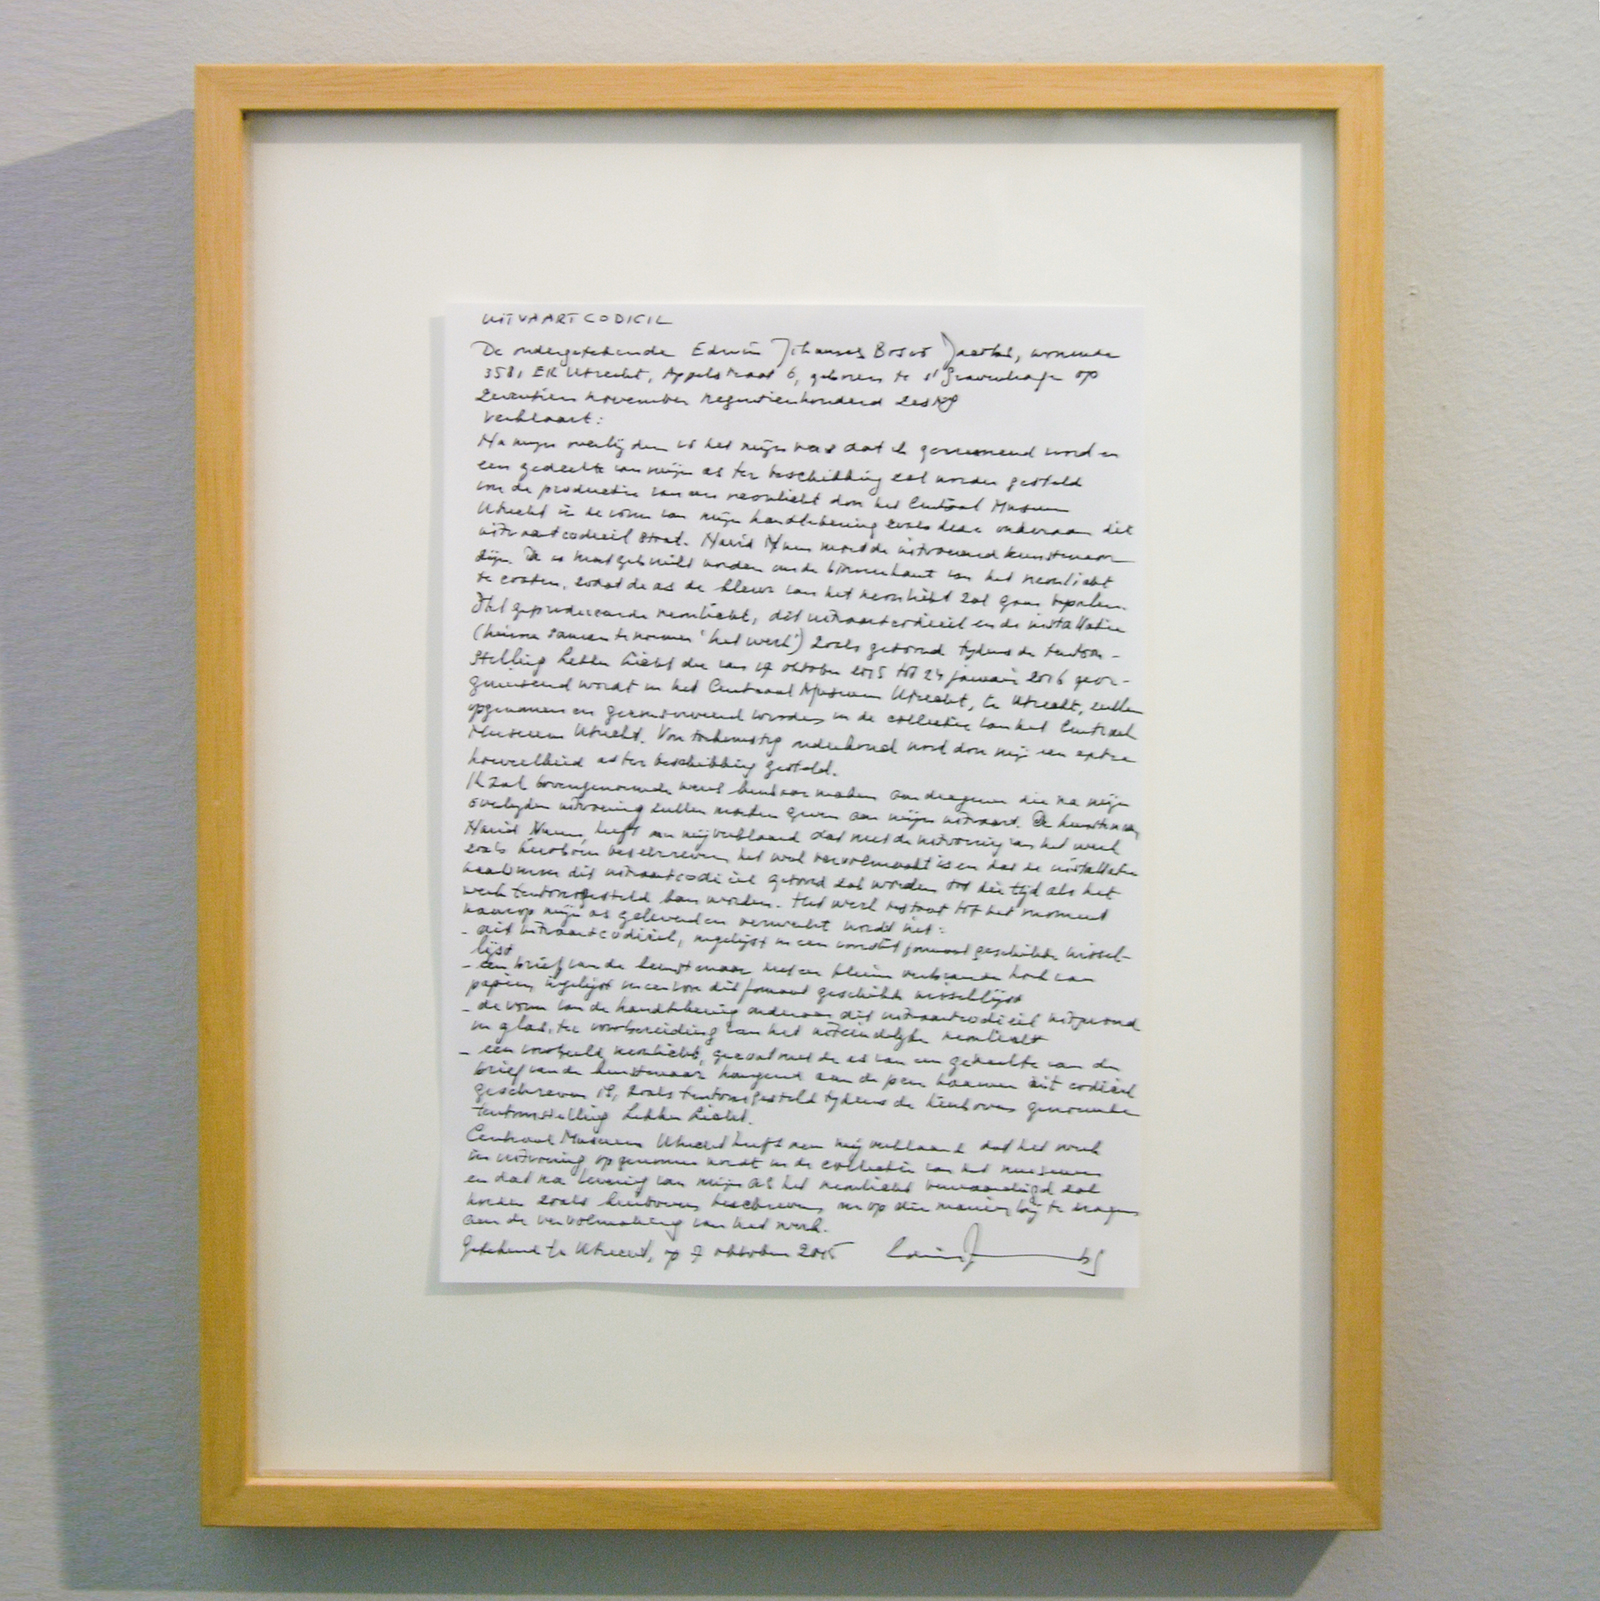 UITVAARTCODICIL
De ondergetekende Edwin Johannes Bosco Jacobs, wonende
3581 ER Utrecht, Appelstraat 6, geboren te s'Gravenhage op
Zeventien november negentienhonderd zestig
verklaart:
Na mijn overlijden is het mijn wens dat ik gecremeerd word en
een gedeelte van mijn as ter beschikking zal worden gesteld
voor de productie van een neonlicht door het Centraal Museum
Utrecht in de vorm van mijn handtekening zoals deze onderaan dit
uitvaartcodicil staat. moet de uitvoerend kunstenaar
zijn. De as moet gebruikt worden om de binnenkant van het neonlicht
te coaten, zodat de as de kleur van het neonlicht zal gaan bepalen.
Het geproduceerde neonlicht, dit uitvaartcodicil en de installatie
(hierna samen te noemen 'het werk') zoals getoond tijdens de tentoon-
stelling Lekker Licht die van 17 oktober 2015 tot 24 januari 2016 geor-
ganiseerd wordt in het Centraal Museum Utrecht, te Utrecht, zullen
opgenomen en geconserveerd worden in de collectie van het Centraal
Museum Utrecht. Voor toekomstig onderhoud word door mij een extra
hoeveelheid as ter beschikking gesteld.
Ik zal bovengenoemde wens kenbaar maken aan degenen die na mijn
overlijden uitvoering zullen moeten geven aan mijn uitvaart. De kunstenaar,
heeft aan mij verklaard dat met de uitvoering van het werk
zoals hierboven beschreven het werk vervolmaakt is en dat de installatie
waarbinnen dit uitvaartcodicil getoond zal worden tot die tijd als het
werk tentoongesteld kan worden. Het werk bestaat tot het moment
waarop mijn as geleverd en verwerkt wordt uit:
- dit uitvaartcodicil, ingelijst in een voor dit formaat geschikte wissel-
lijst
- een brief van de kunstenaar met een klein verbrande hoek van
papier, ingelijst in een voor dit formaat geschikte wissellijst
- de vorm van de handtekening onderaan dit uitvaartcodicil uitgevoerd
in glas, ter voorbereiding van het uiteindelijke neonlicht
- een voorbeeld neonlicht, gecoat met de as van een gedeelte van de
brief van de kunstenaar hangend aan de pen waarmee dit codicil
geschreven is, zoals tentoongesteld tijdens de hierboven genoemde
tentoonstelling Lekker Licht.
Centraal Museum Utrecht heeft aan mij verklaard dat het werk
in uitvoering opgenomen wordt in de collectie van het museum
en dat na levering van mijn as het neonlicht vervaardigd zal
worden zoals hierboven beschreven om op die manier bij te dragen
aan de vervolmaking van het werk.
Getekend te Utrecht, op 7 oktober 2015